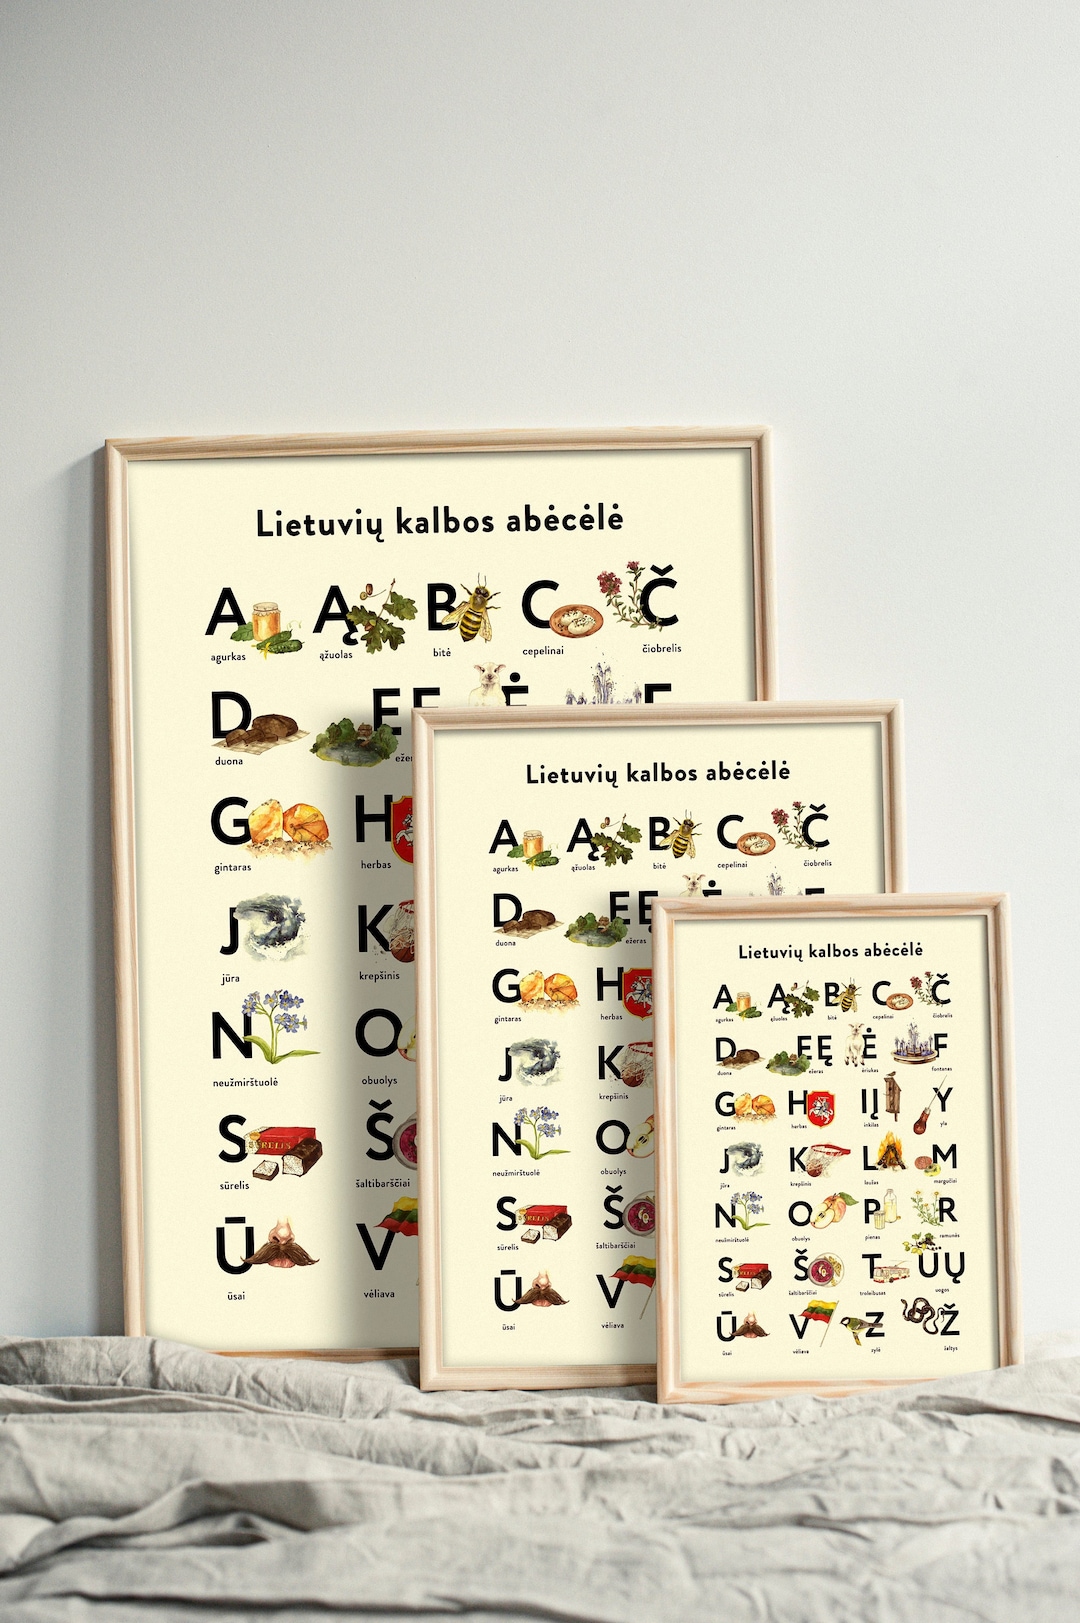 Lietuvių kalbos abėcėlė
A Ą B C Č
agurkas ąžuolas bitė cepelinai čiobrelis
D E Ę Ė F
duona
G H
gintaras herbas
J K
jūra krepšinis
N O
neužmirštuolė obuolys
S Š
SŪRELIS
sūrelis šaltibarščiai
Ū V
ūsai vėliava
Lietuvių kalbos abėcėlė
A Ą B C Č
agurkas ąžuolas bitė cepelinai čiobrelis
D E Ę Ė F
duona ežeras
G H
gintaras herbas
J K
jūra krepšinis
N O
neužmirštuolė obuolys
S Š
SŪRELIS
sūrelis šaltibarščiai
Ū V
ūsai vėliava
Lietuvių kalbos abėcėlė
A Ą B C Č
agurkas ąžuolas bitė cepelinai čiobrelis
D E Ę Ė F
duona ežeras ėriukas fontanas
G H I Į Y
gintaras herbas inkilas yla
J K L M
jūra krepšinis laužas margučiai
N O P R
neužmirštuolė obuolys pienas ramunės
S Š T U Ų
sūrelis šaltibarščiai troleibusas uogos
Ū V Z Ž
ūsai vėliava zylė žaltys